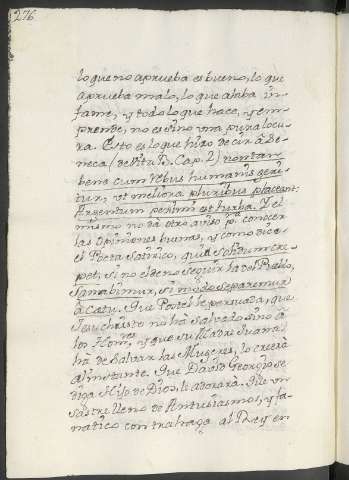 276
lo que no aprueba es bueno, lo que
aprueba malo, lo que alaba in-
fame, y todo lo que hace, y em-
prende, no es sino una pura locu-
ra. Esto es lo que hizo decir à Se-
neca (de Vita B. Cap. 2) non tam
bene cum rebus humanis geri-
tur, ut meliora pluribus placeant:
Argentum pessimi est turba. Y el
mismo no dà otro aviso pᵃ conocer
las Opiniones buenas, y como dice
el Poeta Satirico, quid solidum cre-
pet, si no el de no seguir la del Pueblo,
Sanabimur, si modo separemur
à Cœtu. Que Postel le persuada, que
Jesuchristo no hà Salvado sino à
los Homᵉˢ, y que su Madre Juana
hà de Salvar las Mugeres, lo creerà
al instante. Que David Georgio se
diga Hijo de Dios, le adorarà. Que un
Sastre lleno de Entusiasmos, y fa-
natico contrahaga al Rey en